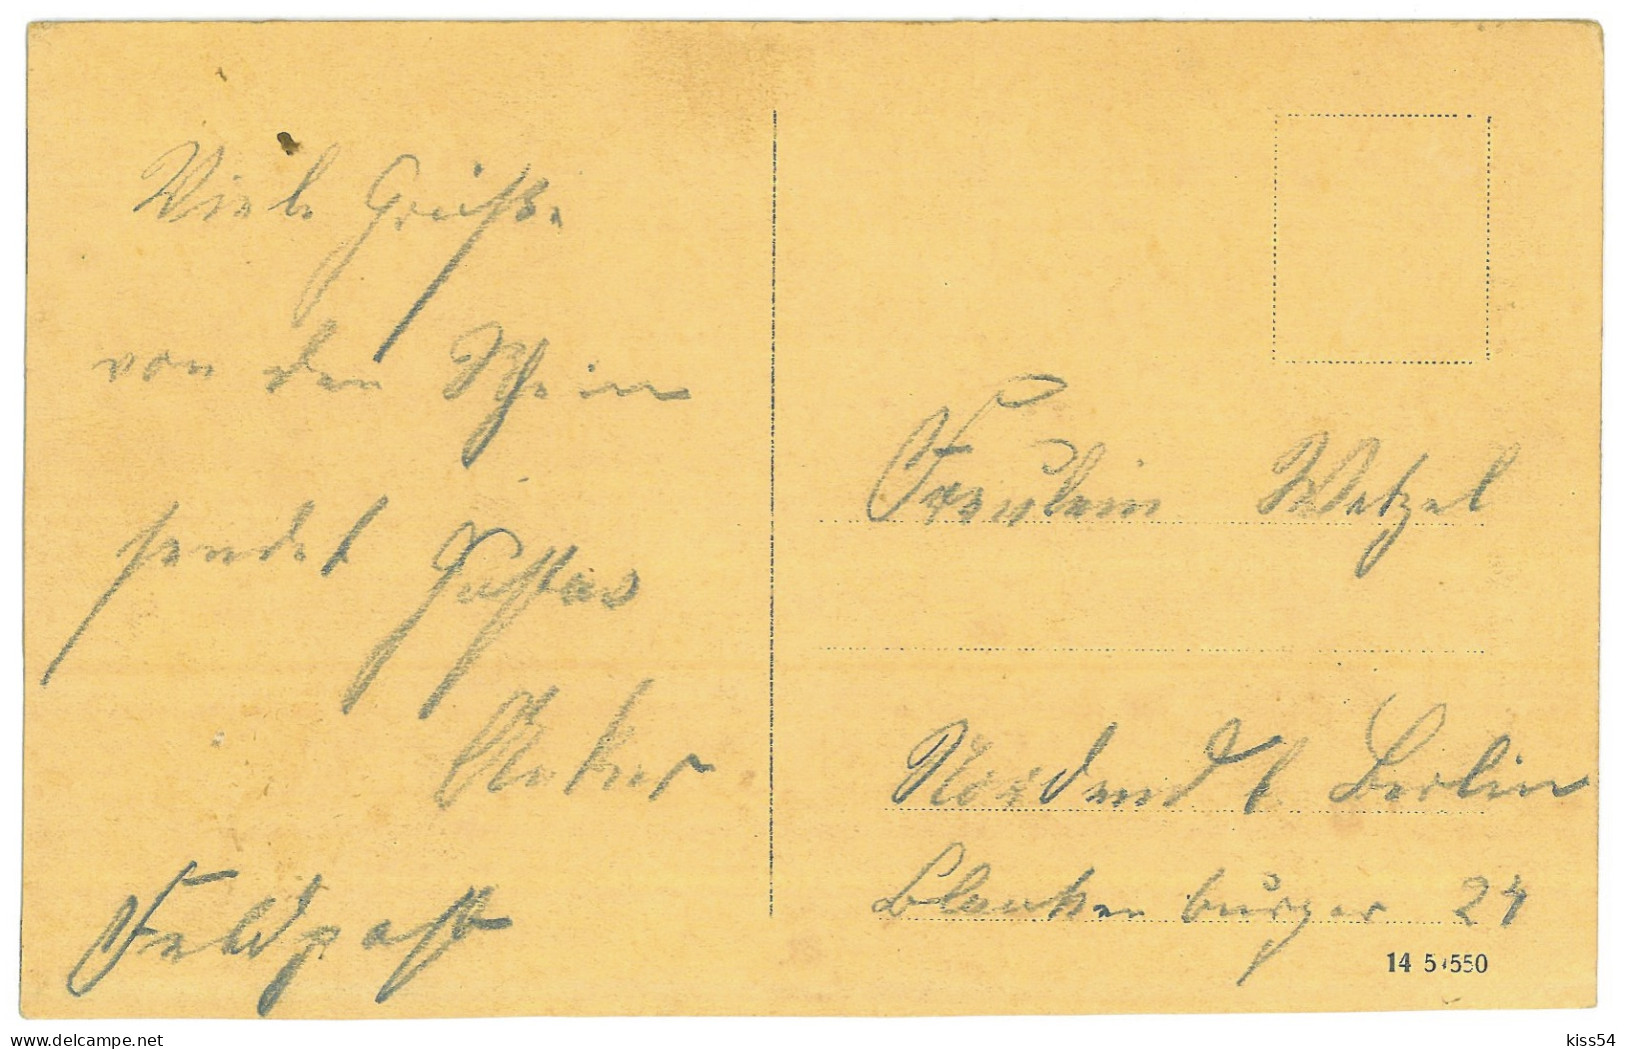 Viele Grüße
von den Rhein
sendet Gustav
Anker
Feldpost
Fräulein Wetzel
Nordend b Berlin
Blankenburger 24
14 5 550
delcampe.net
kiss54